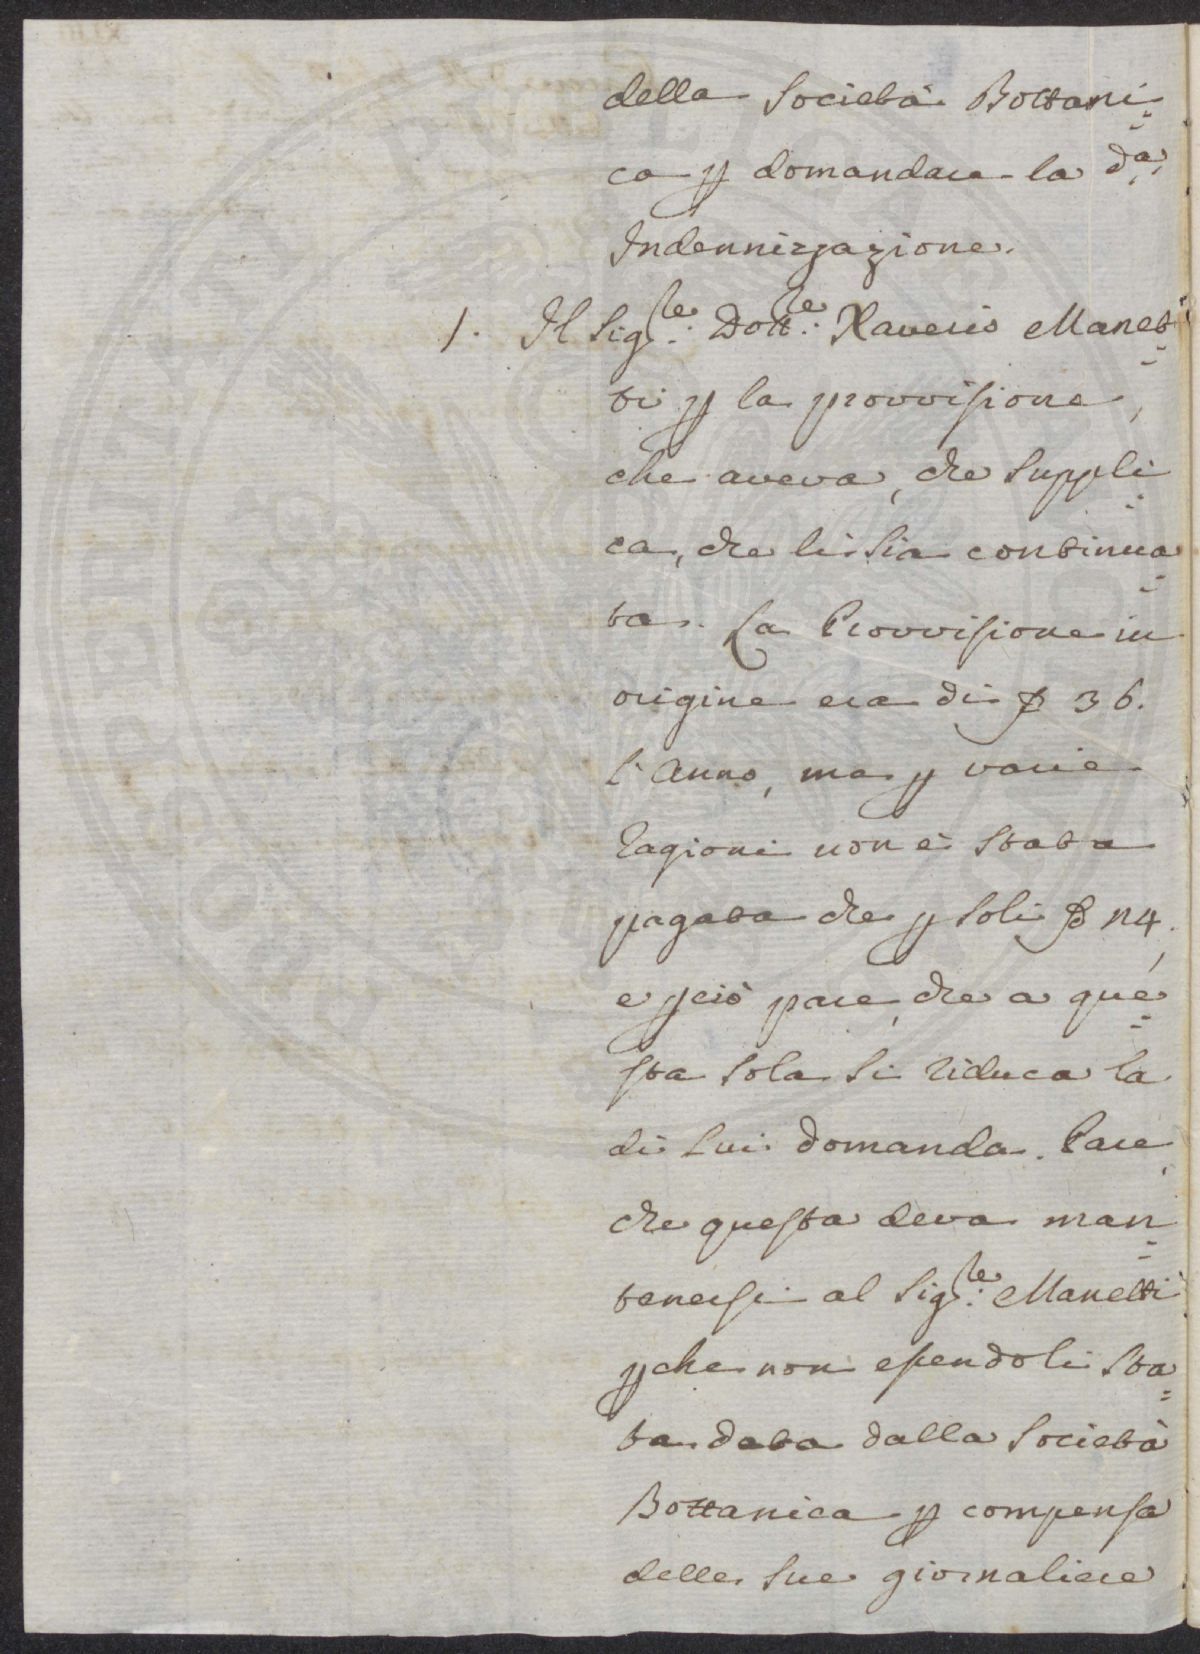 della Società Bottani=
ca p domandare la d.ª
Indennizzazione.
1. Il Sig.re Dott.re Xaverio Manet=
ti p la provvisione,
che aveva, che suppli=
ca, che li sia continua=
ta. La Provvisione in
origine era di 36.
l'Anno, ma p varie
ragioni non è stata
pagata che p soli 24.,
e pciò pare, che a que=
sta sola si riduca la
di lui domanda. Pare,
che questa deva man=
tenersi al Sig.re Manetti
pche non essendoli sta=
ta data dalla Società
Bottanica p compensa
delle sue giornaliere